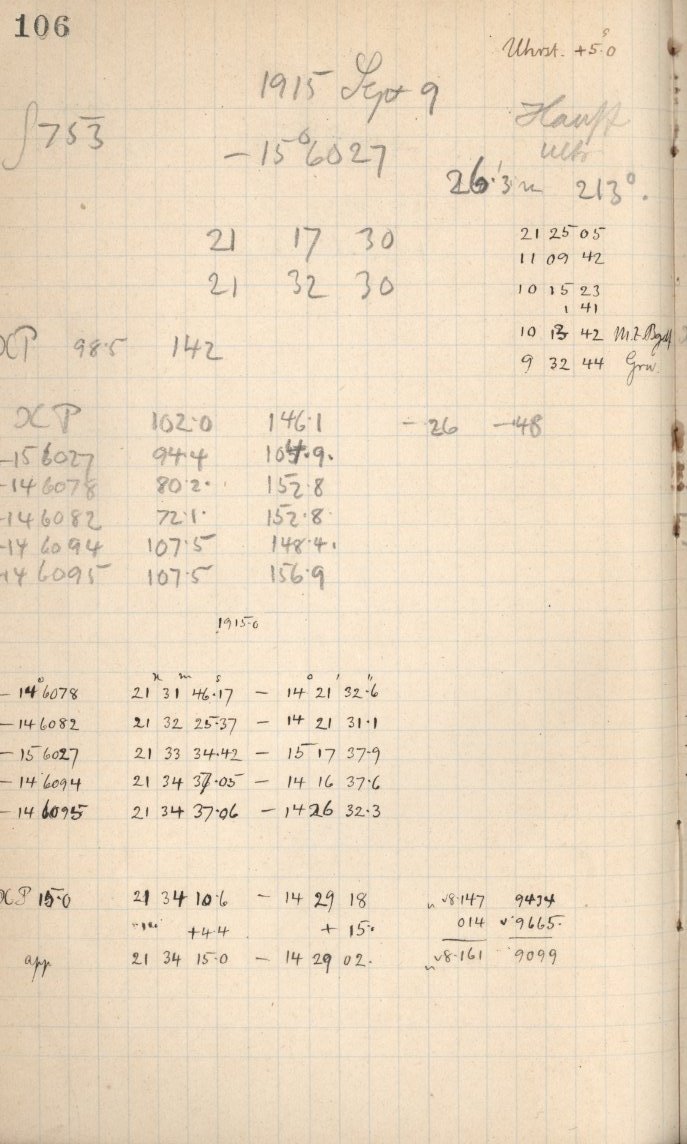 106
Uhrst. +5ˢ.0
1915 Sept 9
∫753
Hauff
ultr
−15°6027
26.3 m 213°.
21 17 30
21 32 30
21 25 05
11 09 42
10 15 23
1 41
10 13 42 M.Z. Bgdf
9 32 44 Grw.
P 98.5 142
P 102.0 146.1 −26 −48
−156027 94.4 104.9.
−146078 80.2. 152.8
−146082 72.1. 152.8.
−146094 107.5 148.4.
−146095 107.5 156.9
1915.0
−14°6078 21ʰ 31ᵐ 46ˢ.17 − 14° 21' 32".6
−146082 21 32 25.37 − 14 21 31.1
−156027 21 33 34.42 − 15 17 37.9
−146094 21 34 37.05 − 14 16 37.6
−146095 21 34 37.06 − 14 26 32.3
P 15.0 21 34 10.6 − 14 29 18 n√8.147 9434
+4.4 + 15. 014 √9665.
app 21 34 15.0 − 14 29 02. n√8.161 9099